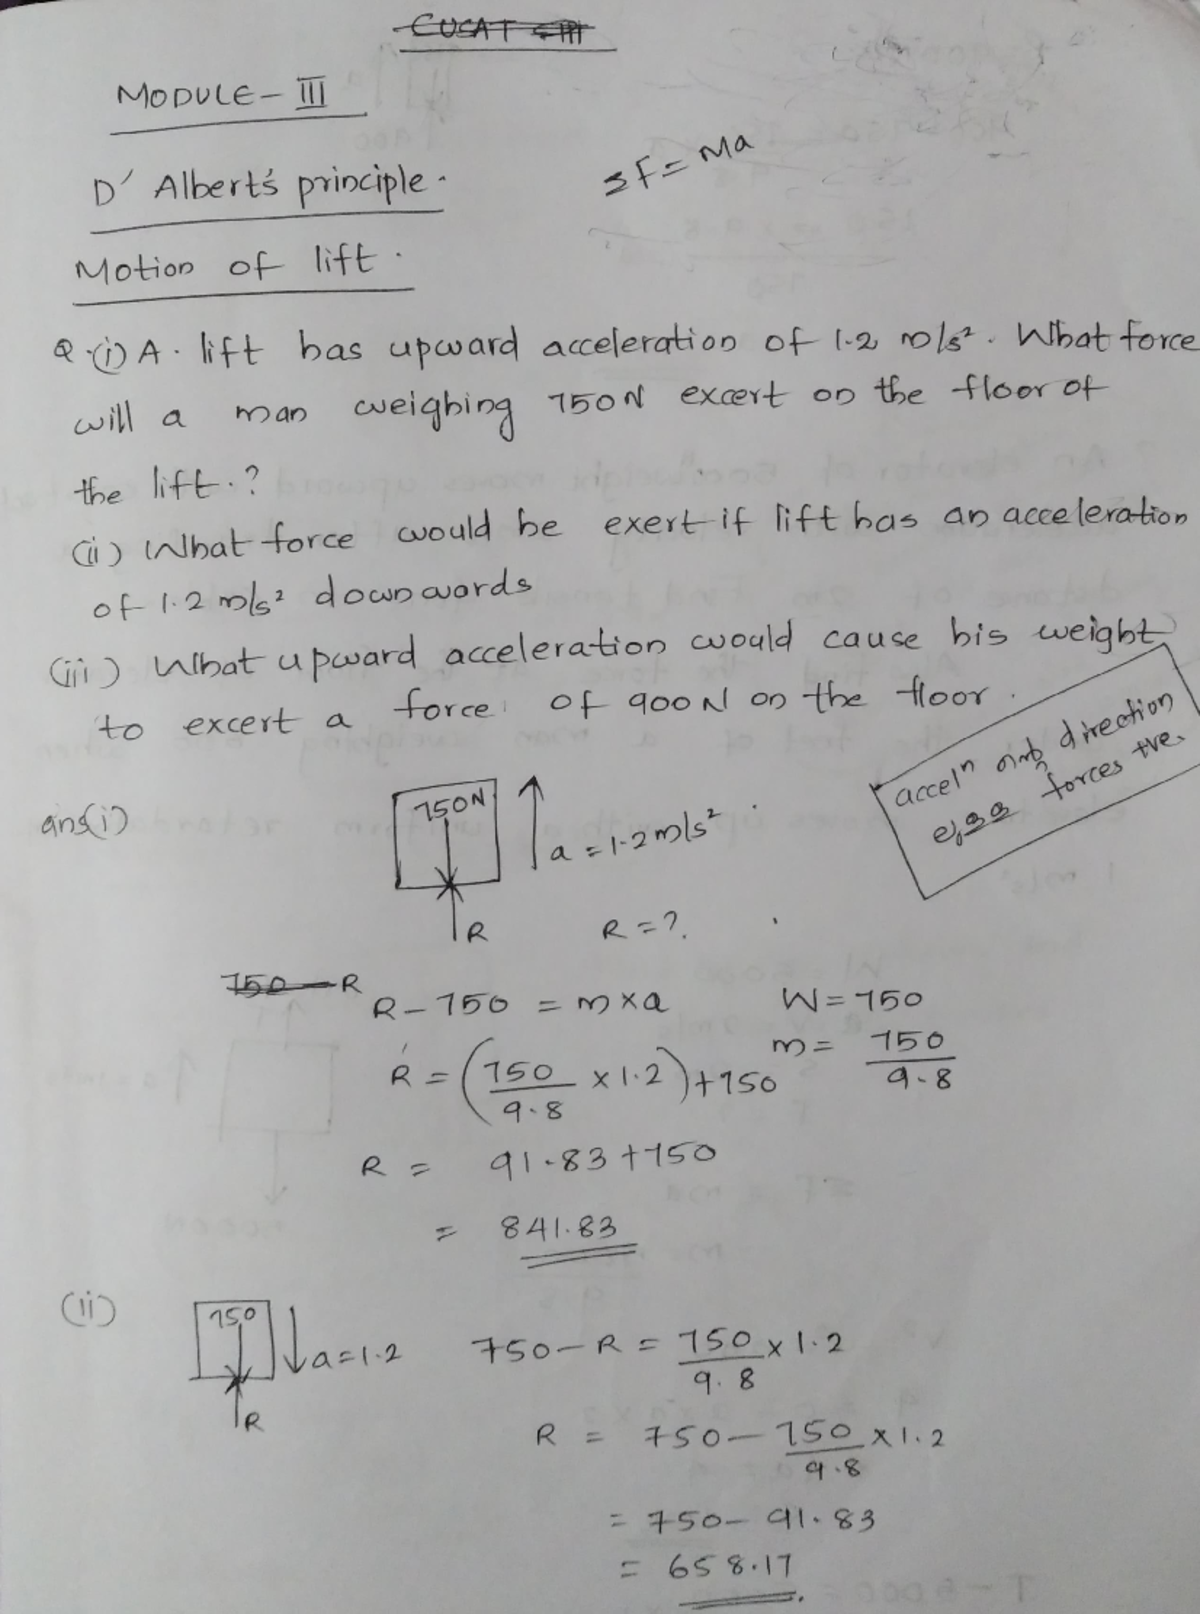 CUSAT
MODULE - III
D' Albert's principle.
ΣF = Ma
Motion of lift.
Q.(i) A. lift has upward acceleration of 1.2 m/s². What force
will a man weighing 750N excert on the floor of
the lift.?
(ii) What force would be exert if lift has an acceleration
of 1.2 m/s² downwards
(iii) What upward acceleration would cause his weight
to excert a force of 900N on the floor.
accelⁿ direction
forces +ve.
ans(i)
750N
a = 1.2 m/s²
R
R = ?
750 - R
R - 750 = m x a
W = 750
R = (750/9.8 x 1.2) + 750
m = 750/9.8
R = 91.83 + 750
= 841.83
(ii)
750
a = 1.2
R
750 - R = 750/9.8 x 1.2
R = 750 - 750/9.8 x 1.2
= 750 - 91.83
= 658.17